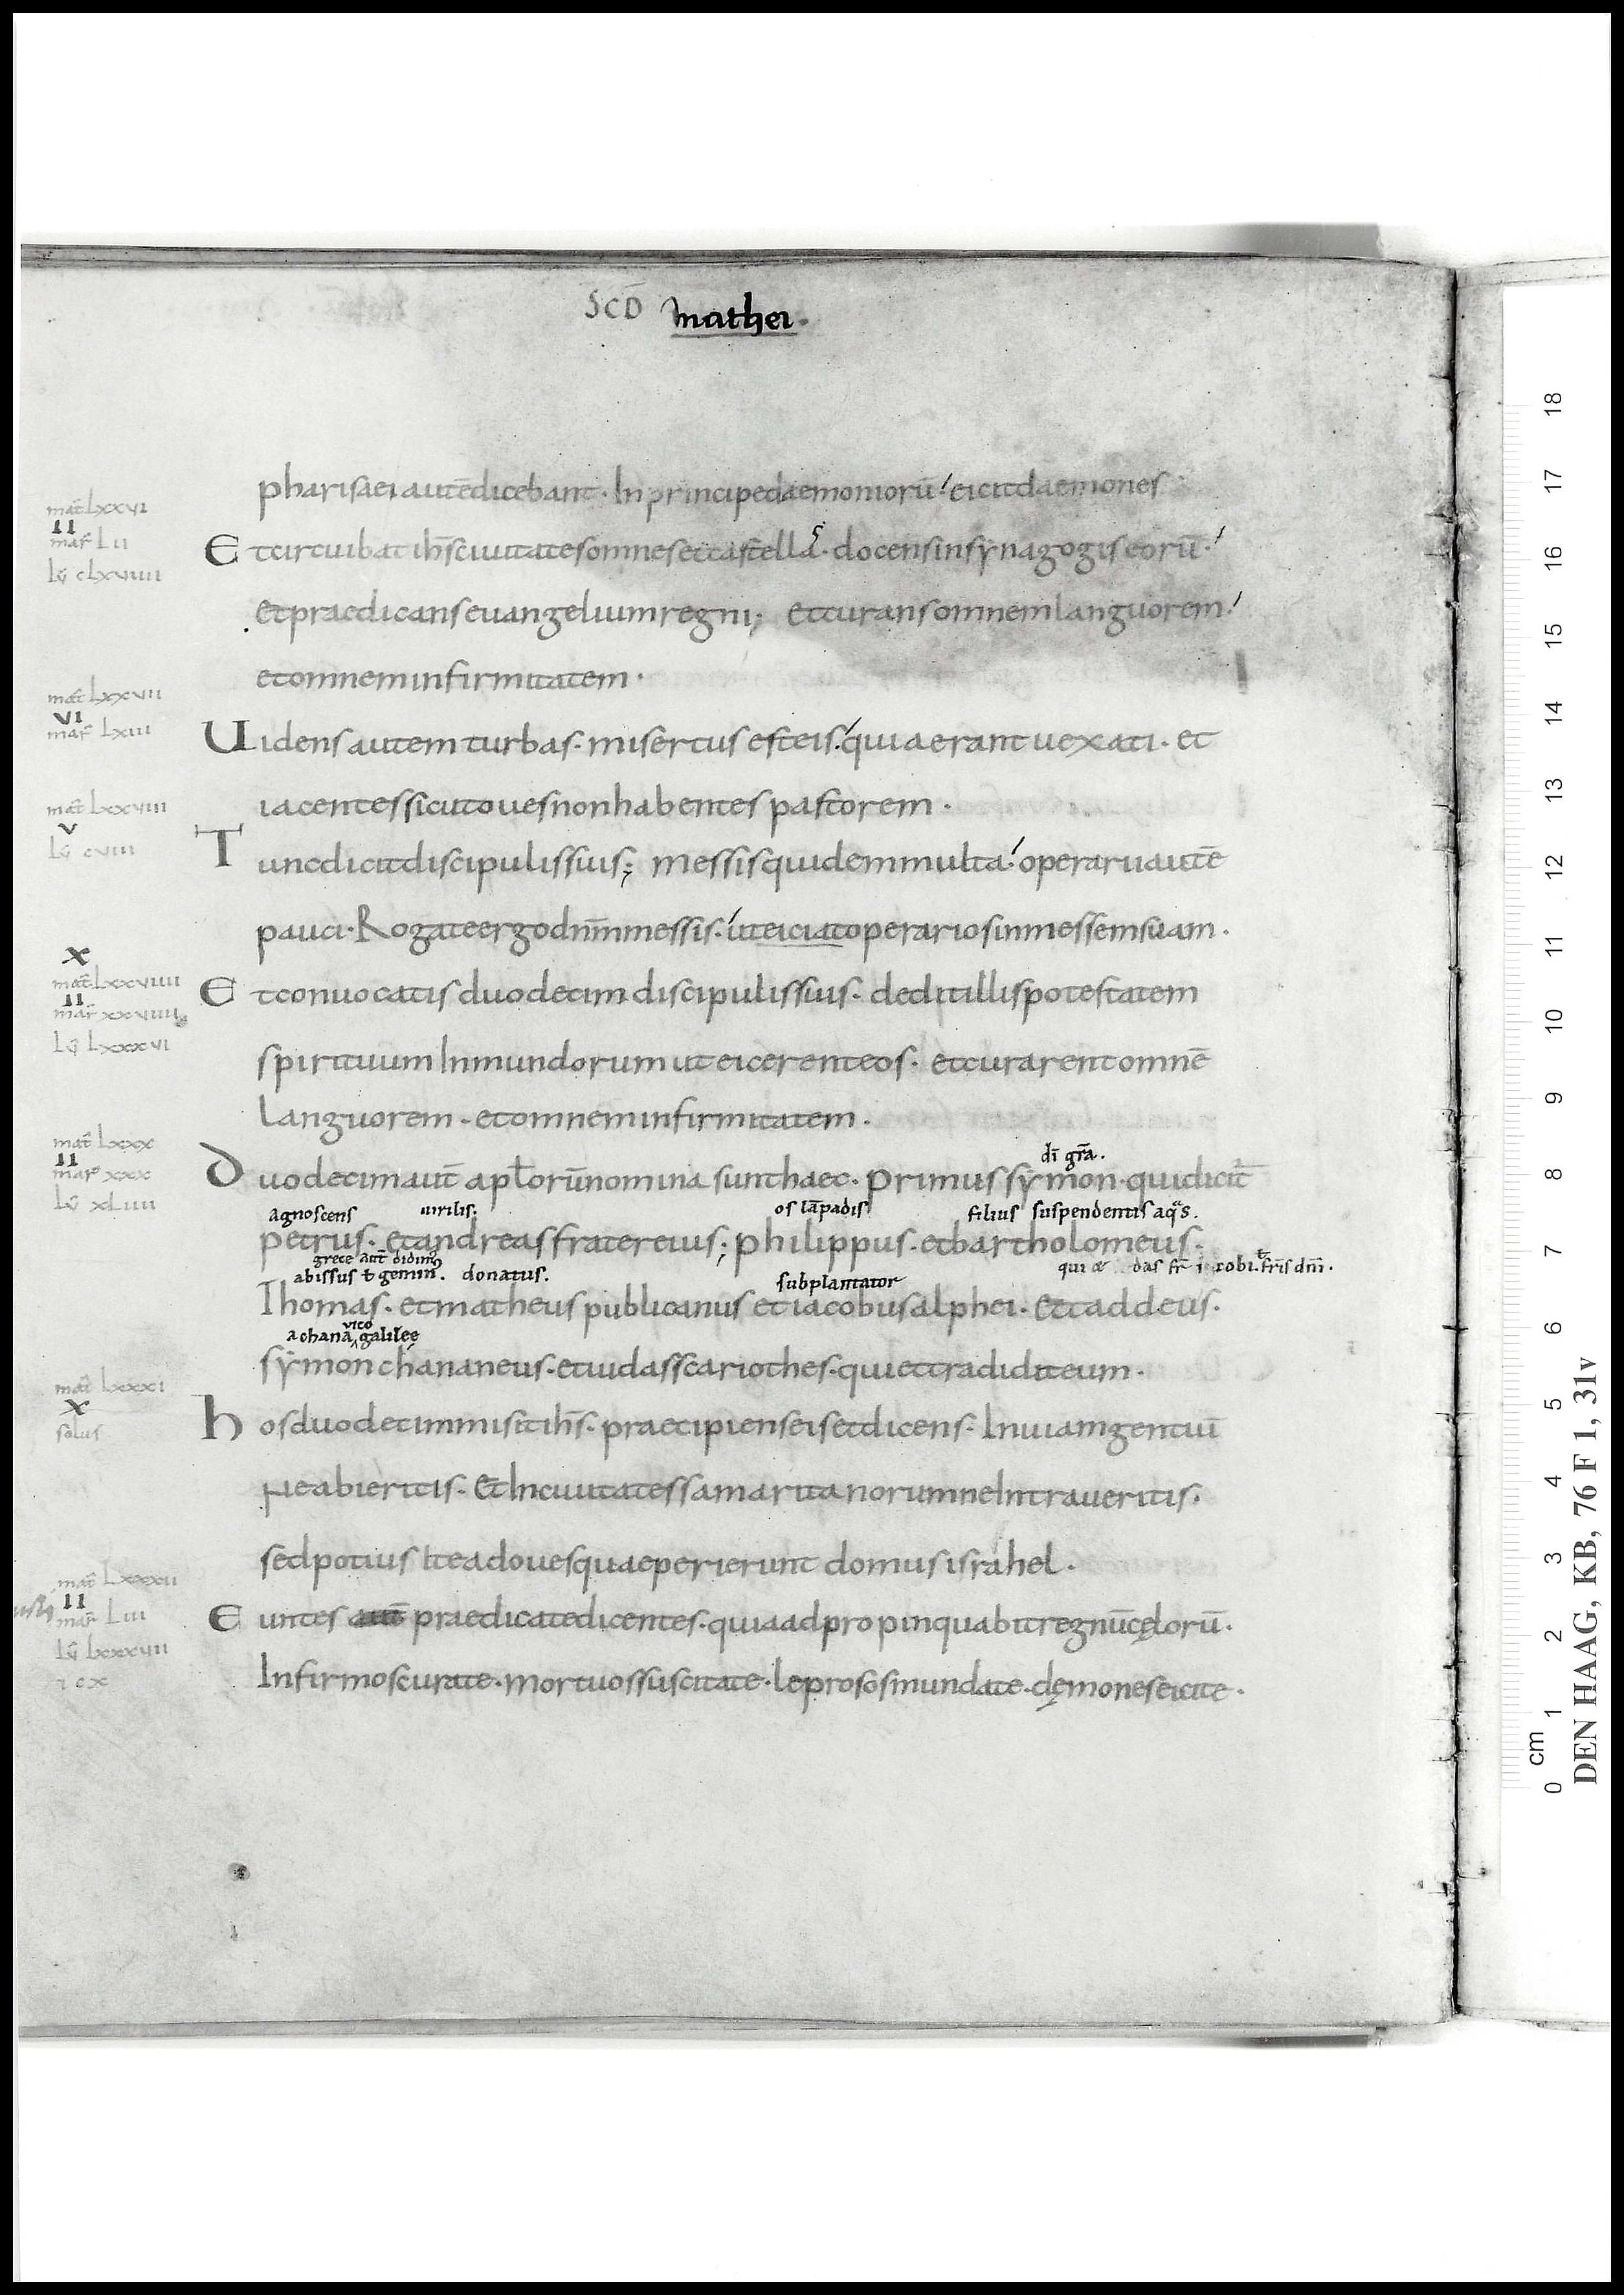 SCD mathei.
pharisaei autē dicebant. In principe daemoniorū eicit daemones
mat̄ Lxxvi
II
mar̄ Lii
lū cLxviiii
Et circuibat ih̄s ciuitates omnes et castella. docens in synagogis eorū.
et praedicans euangelium regni; et curans omnem languorem.
et omnem infirmitatem.
mat̄ Lxxvii
VI
mar̄ Lxiii
Uidens autem turbas. misertus est eis. quia erant uexati. et
iacentes sicut oues non habentes pastorem.
mat̄ Lxxviii
V
lū cviii
Tunc dicit discipulis suis; messis quidem multa. operarii autē
pauci. Rogate ergo dnm̄ messis. ut eiciat operarios in messem suam.
X
mat̄ Lxxviiii
II
mar̄ xxviiii
lū Lxxxvi
Et conuocatis duodecim discipulis suis. dedit illis potestatem
spirituum Inmundorum ut eicerent eos. et curarent omnē
Languorem. et omnem infirmitatem.
mat̄ Lxxx
II
mar̄ xxx
lū xLiiii
dī grā.
Duodecim aut̄ apl̄orū nomina sunt haec. primus symon. qui dicit̄
agnoscens uirilis. os lāpadis filius suspendentis aqͣs.
petrus. et andreas frater eius; philippus. et bartholomeus.
grece aut̄ didim'
abissus ƚ gemin'. donatus. subplantator
Thomas. et matheus publicanus et iacobus alphei. Et taddeus.
a chana vico galilęę
symon chananeus. et iudas scariothes. qui et tradidit eum.
mat̄ Lxxxi
X
solus
hos duodecim misit ih̄s. praecipiens eis et dicens. In uiam gentiū
Ne abieritis. Et In ciuitates samaritanorum ne Intraueritis.
sed potius Ite ad oues quae perierunt domus israhel.
mat̄ Lxxxii
II
mar̄ Liii
lū Lxxxvii
Euntes praedicate dicentes. quia adpropinquabit regnū cęlorū.
Infirmos curate. mortuos suscitate. leprosos mundate. dęmones eicite.
18
17
16
15
14
13
12
11
10
9
8
7
6
5
4
3
2
1
0
cm
DEN HAAG, KB, 76 F 1, 31v